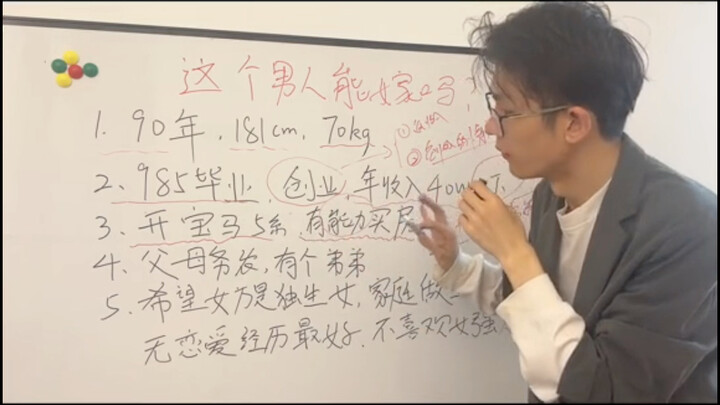 这个男人能嫁吗
1. 90年, 181cm, 70kg
① 收入
② 创业的
2、985毕业, 创业, 年收入40w
3、开宝马5系, 有能力买房
4、父母务农, 有个弟弟
5、希望女方是独生女, 家庭做
无恋爱经历最好, 不喜欢女强